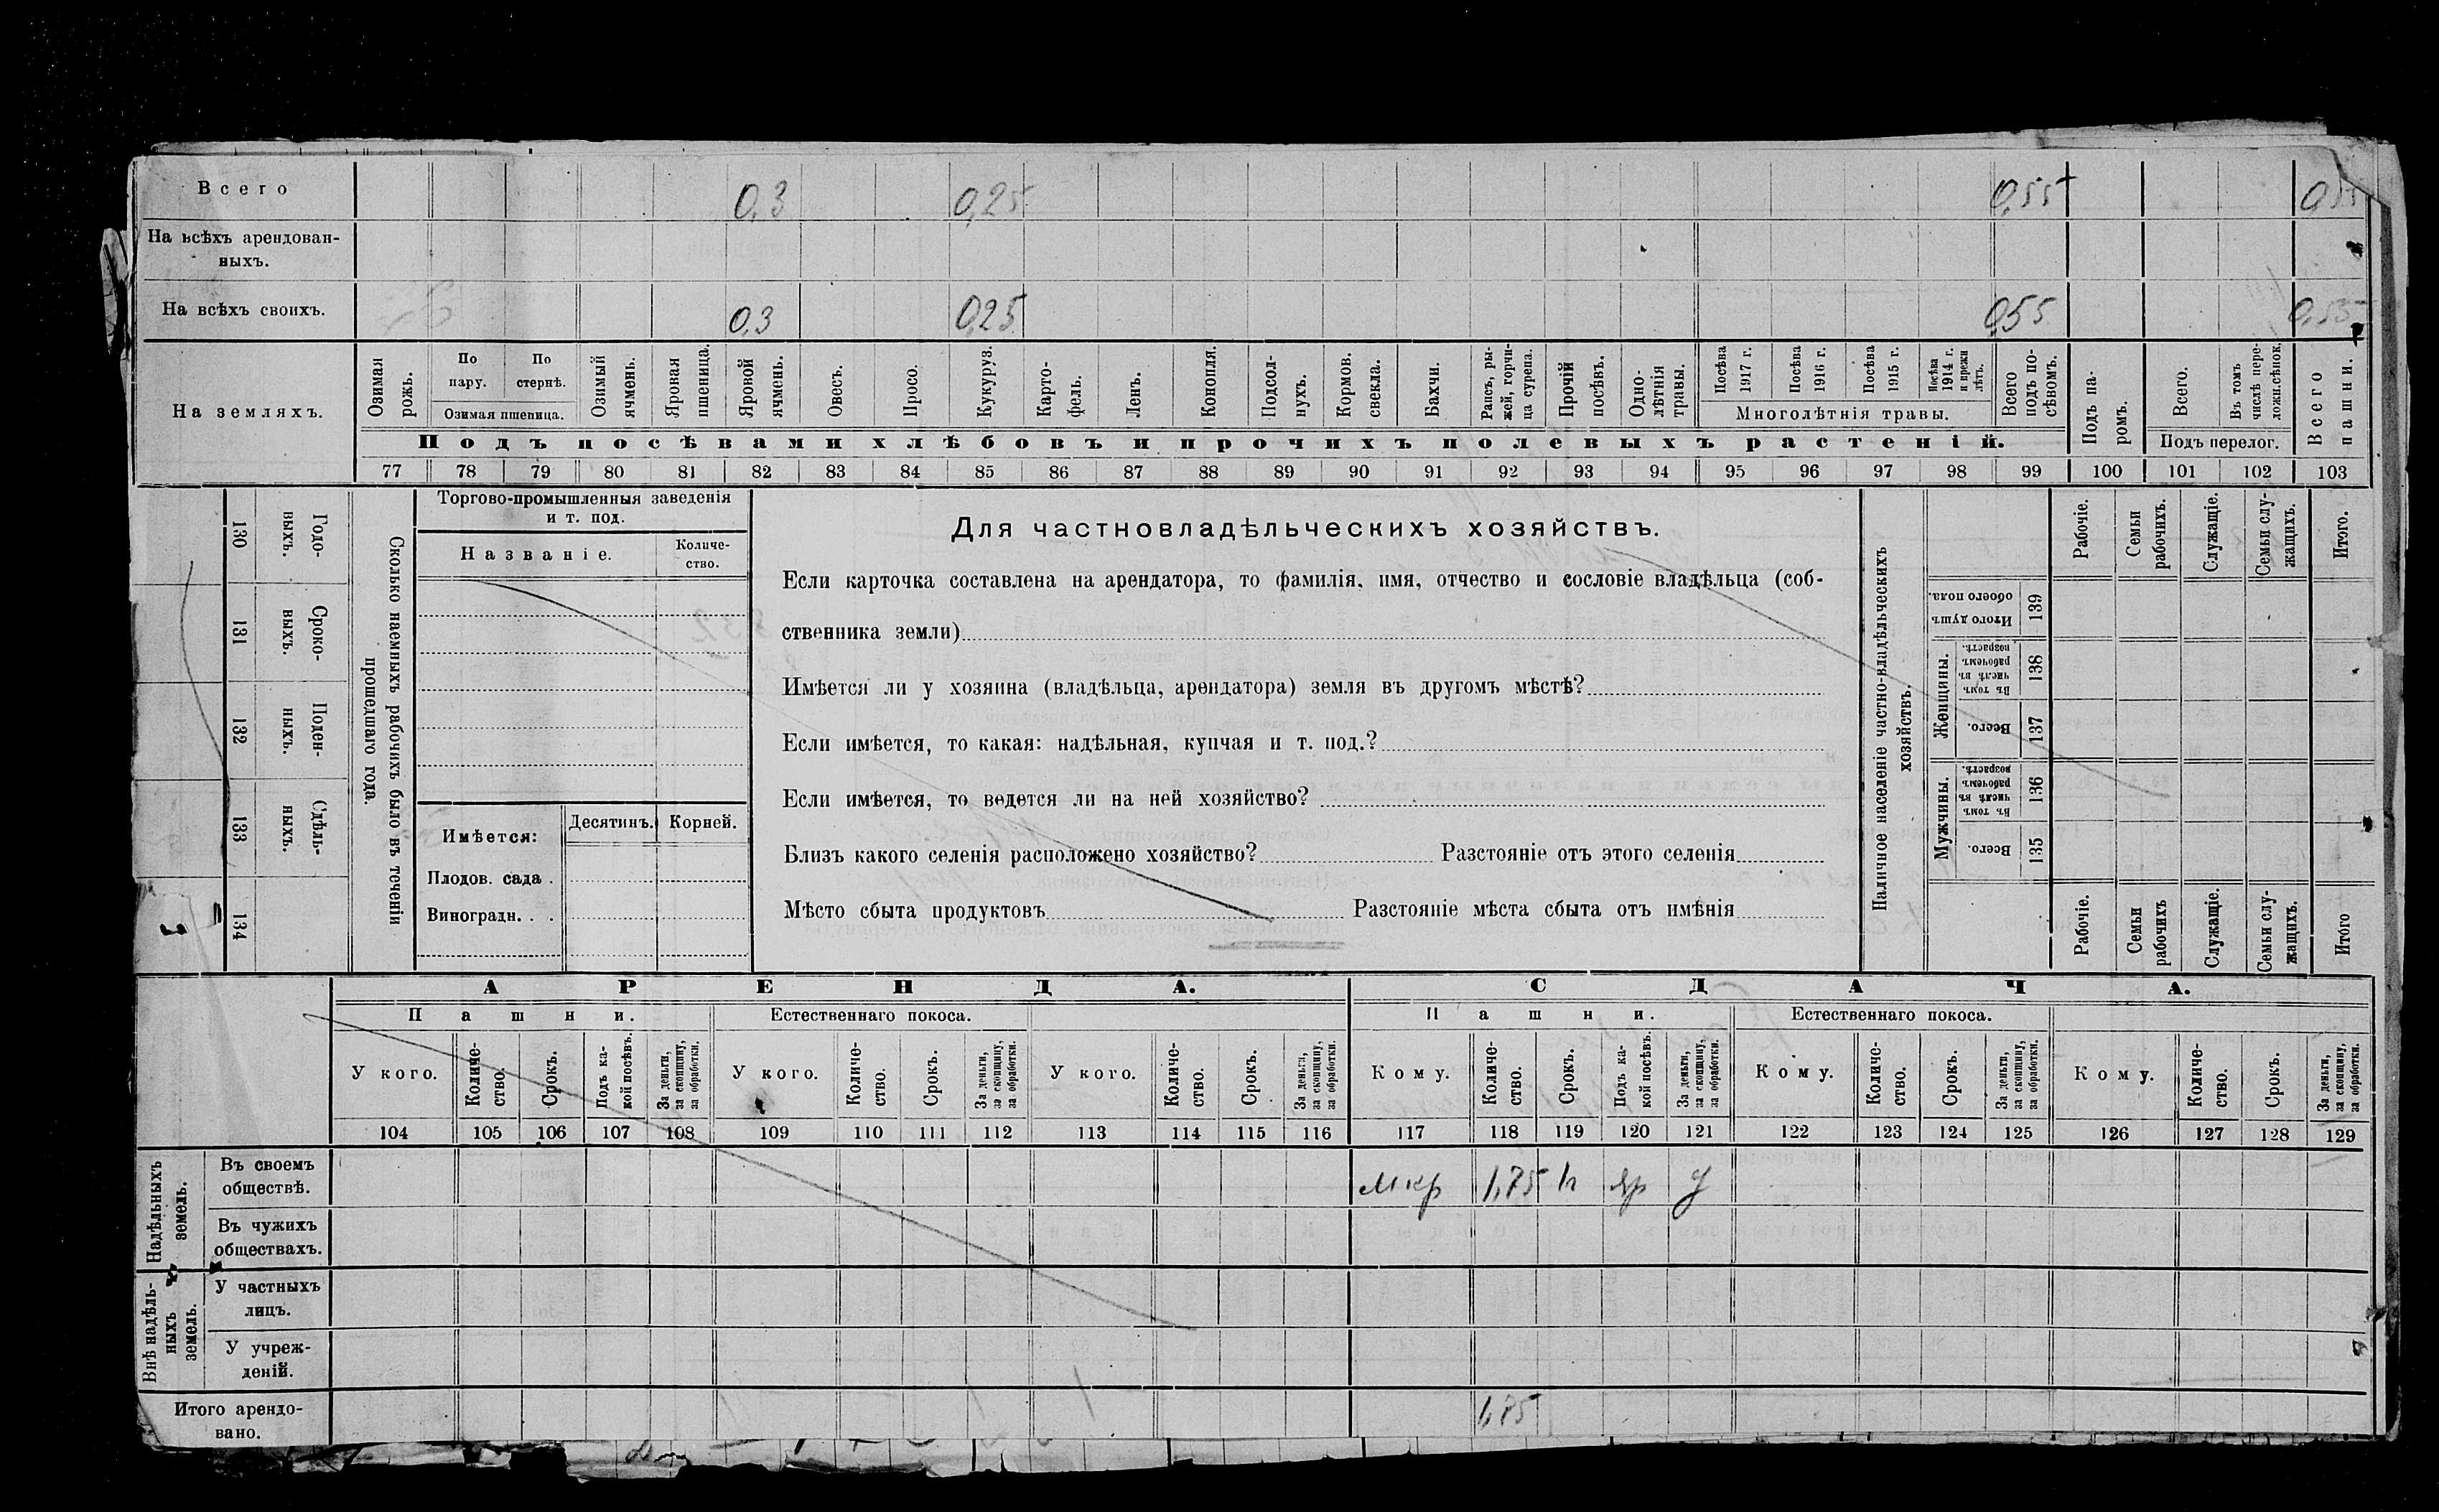 Всего 0,3 0,25 0,55 0,55
На всѣхъ арендован-
ныхъ.
На всѣхъ своихъ. 0,3 0,25 0,55 0,55
На земляхъ.
Озимая рожь.
По пару.
По стернѣ.
Озимая пшеница.
Озимый ячмень.
Яровая пшеница.
Яровой ячмень.
Овесъ.
Просо.
Кукуруз.
Карто-
фель.
Ленъ.
Конопля.
Подсол-
нухъ.
Кормов. свекла.
Бахчи.
Рапсъ, ры-
жей, горчи-
ца сурепа.
Прочій посѣвъ.
Одно-
лѣтнія травы.
Посѣва 1917 г.
Посѣва 1916 г.
Посѣва 1915 г.
Посѣва 1914 г. и прежн лѣтъ.
Многолѣтнія травы.
Всего подъ по-
сѣвомъ.
Подъ посѣвами хлѣбовъ и прочихъ полевыхъ растеній.
Подъ па-
ромъ.
Всего.
Въ томъ числѣ пере-
ложн.сѣнок.
Подъ перелог.
Всего пашни.
77 78 79 80 81 82 83 84 85 86 87 88 89 90 91 92 93 94 95 96 97 98 99 100 101 102 103
Сколько наемныхъ рабочихъ было въ теченіи
прошедшаго года.
Годо-
выхъ.
130
Сроко-
выхъ.
131
Поден-
ныхъ.
132
Сдѣль-
ныхъ.
133
134
Торгово-промышленныя заведенія
и т. под.
Названіе.
Количе-
ство.
Имѣется: Десятинъ. Корней.
Плодов. сада .
Виноградн. . .
Для частновладѣльческихъ хозяйствъ.
Если карточка составлена на арендатора, то фамилія, имя, отчество и сословіе владѣльца (соб-
ственника земли)
Имѣется ли у хозяина (владѣльца, арендатора) земля въ другомъ мѣстѣ?
Если имѣется, то какая: надѣльная, купчая и т. под.?
Если имѣется, то ведется ли на ней хозяйство?
Близъ какого селенія расположено хозяйство? Разстояніе отъ этого селенія
Мѣсто сбыта продуктовъ Разстояніе мѣста сбыта отъ имѣнія
Наличное населеніе частно-владѣльческихъ
хозяйствъ.
Рабочіе.
Семьи рабочихъ.
Служащіе.
Семьи слу-
жащихъ.
Итого.
Итого душъ обоего пола.
139
Женщины.
Въ томъ числѣ въ рабочемъ возрастѣ.
138
Всего.
137
Мужчины.
Въ томъ числѣ въ рабочемъ возрастѣ.
136
Всего.
135
Рабочіе.
Семьи рабочихъ
Служащіе.
Семьи слу-
жащихъ.
Итого
АРЕНДА. СДАЧА.
Пашни. Естественнаго покоса. Пашни. Естественнаго покоса.
У кого.
Количе-
ство.
Срокъ.
Подъ ка-
кой посѣвъ.
За деньги, за скопщину, за обработки.
У кого.
Количе-
ство.
Срокъ.
За деньги, за скопщину, за обработки.
У кого.
Количе-
ство.
Срокъ.
За деньги, за скопщину, за обработки.
Кому.
Количе-
ство.
Срокъ.
Подъ ка-
кой посѣвъ.
За деньги, за скопщину, за обработки.
Кому.
Количе-
ство.
Срокъ.
За деньги, за скопщину, за обработки.
Кому.
Количе-
ство.
Срокъ.
За деньги, за скопщину, за обработки.
104 105 106 107 108 109 110 111 112 113 114 115 116 117 118 119 120 121 122 123 124 125 126 127 128 129
Надѣльныхъ земель.
Въ своемъ
обществѣ. 1,75
Въ чужихъ
обществахъ.
Внѣ надѣль-
ныхъ земель.
У частныхъ
лицъ.
У учреж-
деній.
Итого арендо-
вано. 1,75